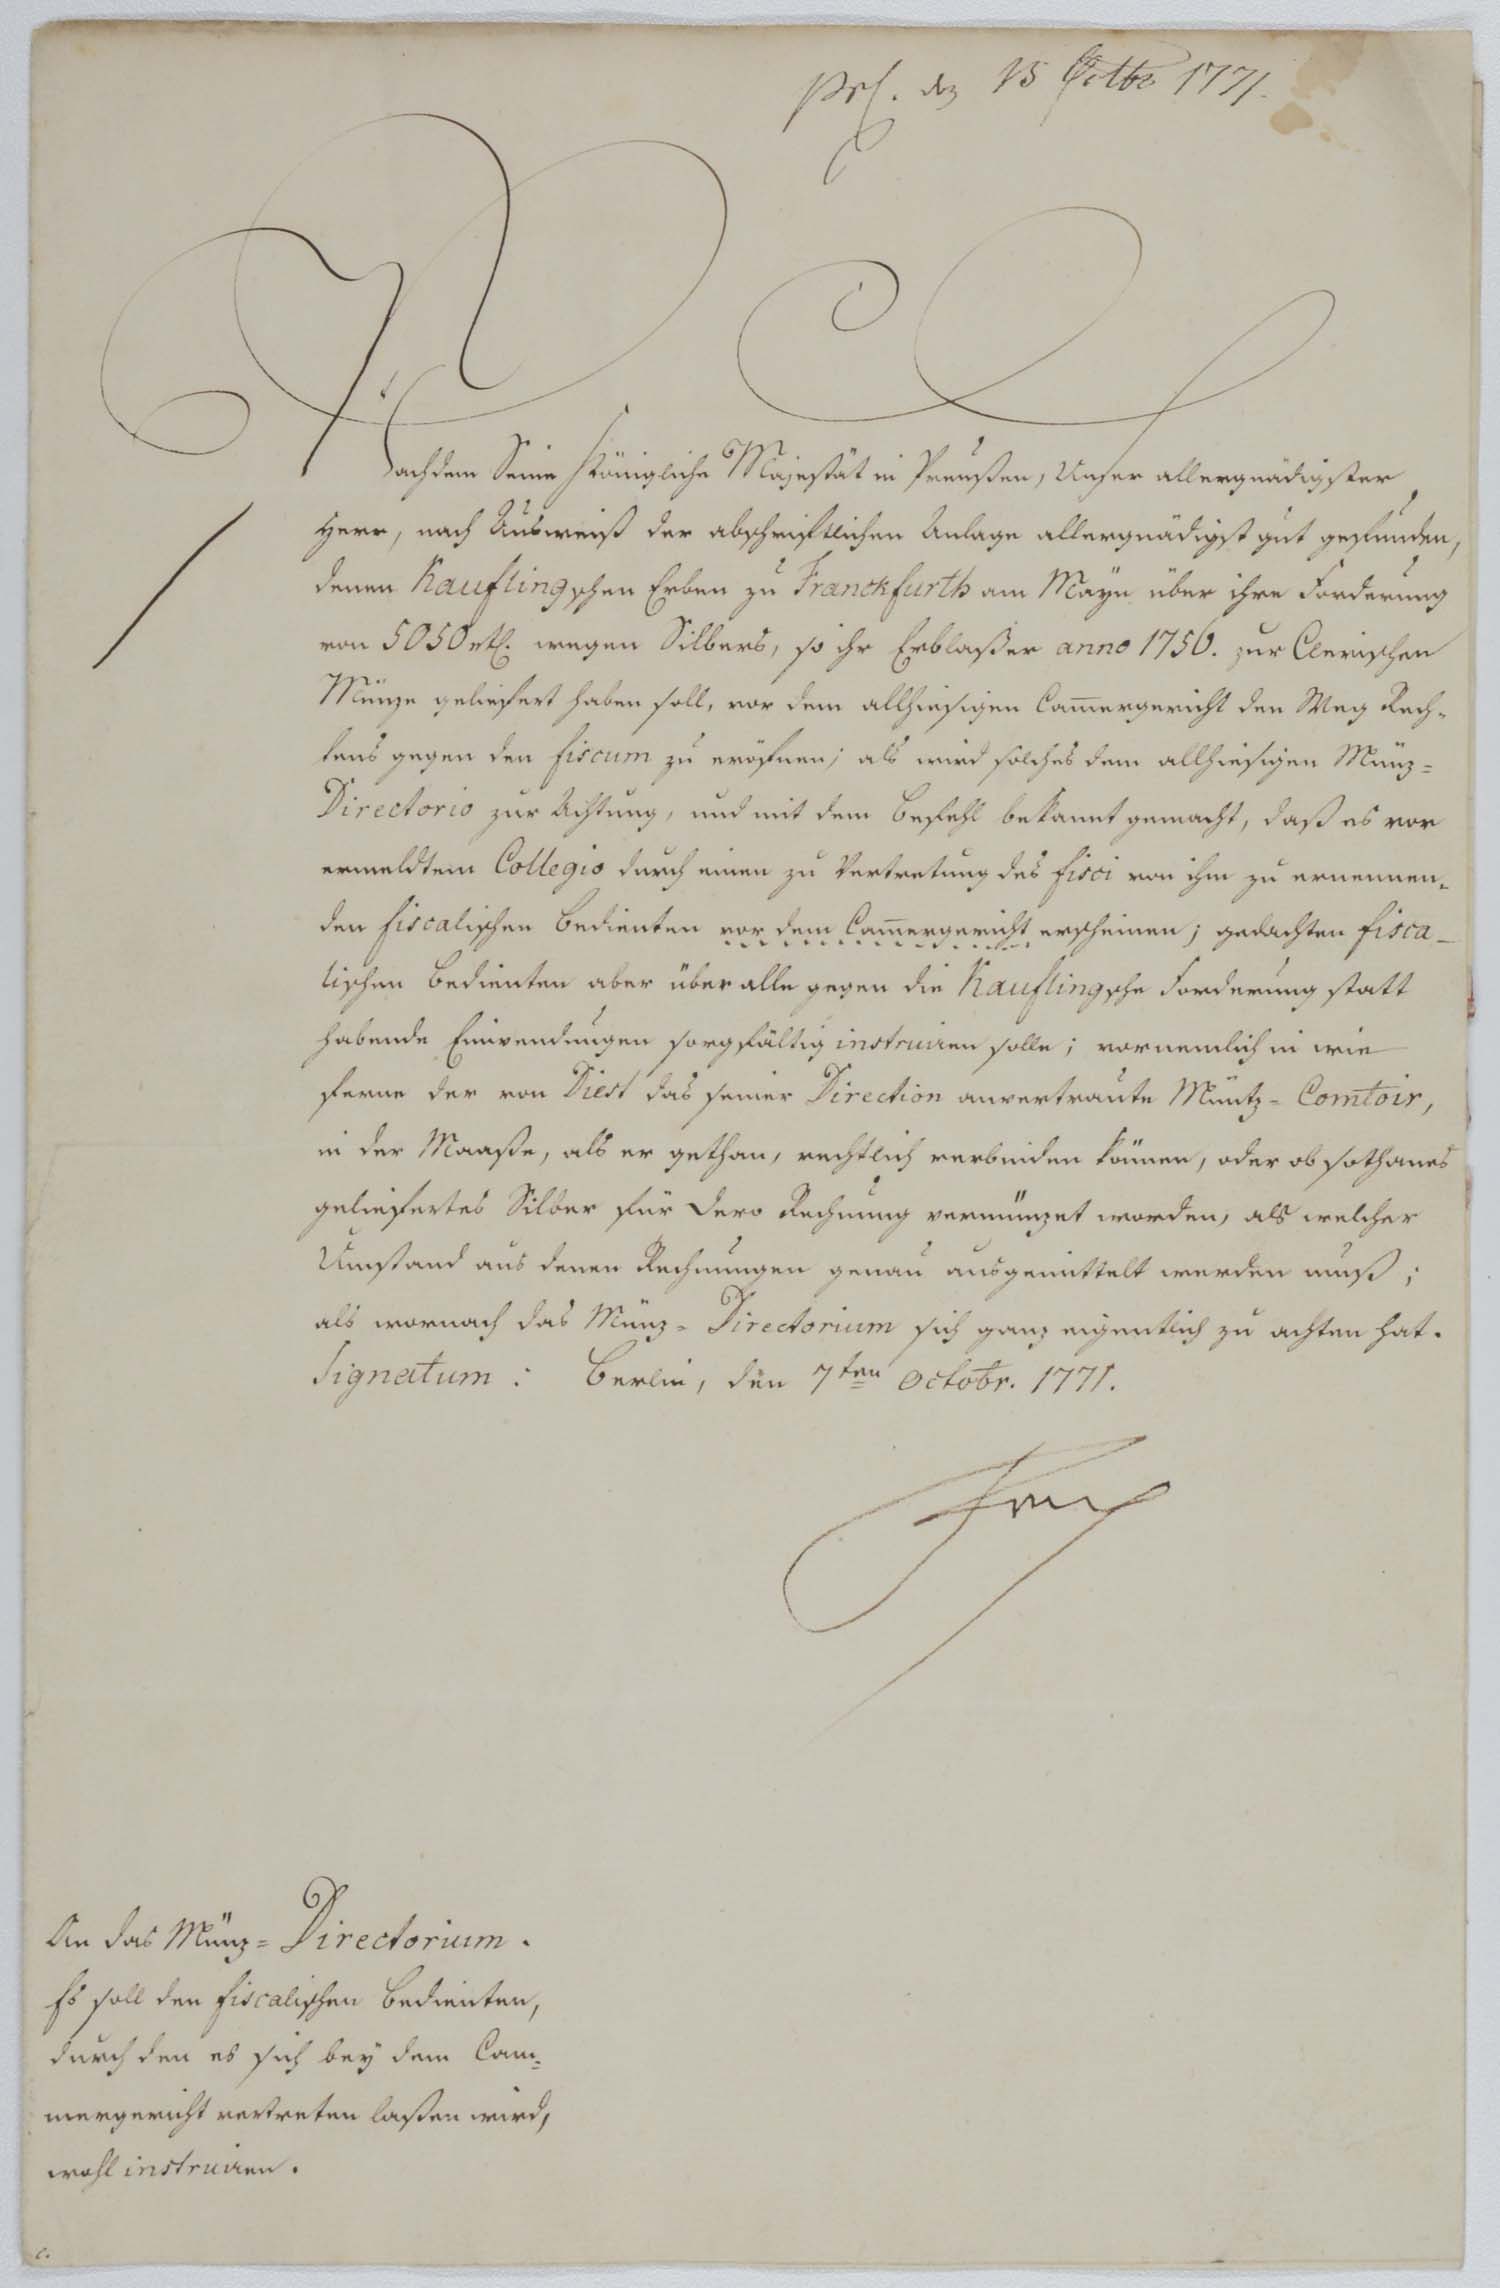 prs. den 15 Octbr 1771.
Nachdem Seine Königliche Majestät in Preußen, Unser allergnädigster
Herr, nach Ausweiß der abschriftlichen Anlage allergnädigst gut gefunden,
denen Kauflingschen Erben zu Franckfurth am Mayn über ihre Forderung
von 5050 rtl. wegen Silbers, so ihr Erblaßer anno 1756. zur Clevischen
Münze geliefert haben soll, vor dem allhiesigen Cam̄ergericht den Weg Rech-
tens gegen den fiscum zu eröfnen; als wird solches dem allhiesigen Münz-
Directorio zur Achtung, und mit dem Befehl bekannt gemacht, daß es vor
ermeldtem Collegio durch einen zu Vertretung des fisci von ihm zu ernennen-
den fiscalischen Bedienten vor dem Cam̄ergericht erscheinen; gedachten fisca-
lischen Bedienten aber über alle gegen die Kauflingsche Forderung statt
habende Einwendungen sorgfältig instruiren solle; vornemlich in wie
ferne der von Diest das seiner Direction anvertraute Müntz-Comtoir,
in der Maaße, als er gethan, rechtlich verbinden können, oder ob sothanes
geliefertes Silber für Dero Rechnung vermünzet worden, als welcher
Umstand aus denen Rechnungen genau ausgemittelt werden muß;
als wornach das Münz-Directorium sich ganz eigentlich zu achten hat.
Signatum: Berlin, den 7ten Octobr. 1771.
An das Münz-Directorium.
Es soll den fiscalischen Bedienten,
durch den es sich bey dem Cam-
mergericht vertreten laßen wird,
wohl instruiren.
c.